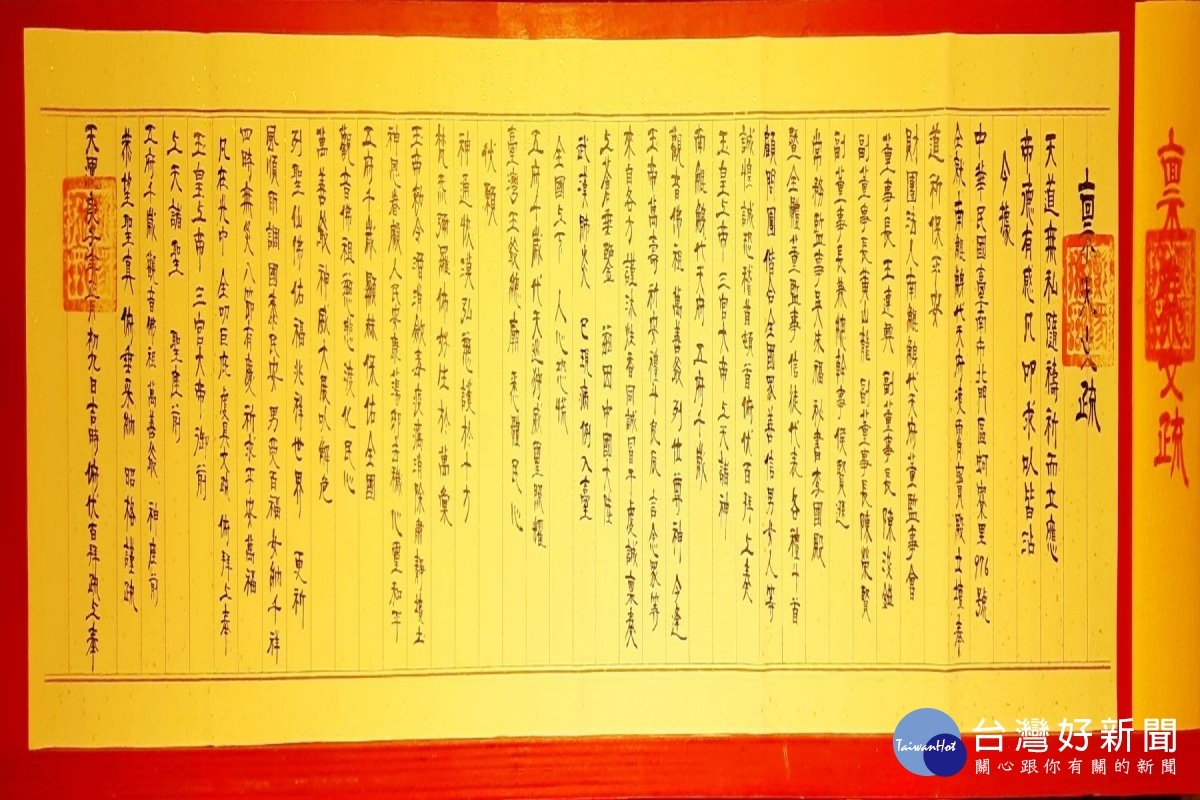 稟天文疏
稟天文疏
天道無私隨禱祈而立應
帝德有感凡叩求以皆沾
今據
中華民國臺南市北門區蚵寮里976號
全銜南鯤鯓代天府凌霄寶殿立壇奉
道祈保平安
財團法人南鯤鯓代天府董監事會
董事長王達興 副董事長陳淡鐘
副董事長黃山龍 副董事長陳榮賢
副董事長兼總幹事侯賢遜
常務監事吳天福 秘書李國殿
暨全體董監事信徒代表各禮斗首
顧問團偕合全國眾善信男女人等
誠惶誠恐稽首頓首俯伏百拜上奏
玉皇上帝 三官大帝 上天諸神
南鯤鯓代天府 五府千歲
觀音佛祖 萬善爺 列位尊神 今逢
玉帝萬壽祈安禮斗良辰 言念眾等
來自各方謹沐炷香同誠昌平虔誠稟奏
上蒼垂聖 茲因中國大陸
武漢肺炎 已現病例入臺
全國上下 人心恐怖
五府千歲代天巡狩威靈顯耀
臺灣王爺總廟 悉體民心
伏願
神通恢漠弘慈護於十方
梵炁彌羅佈好生於萬彙
玉帝敕令消泊歛毒疫癘消除肅靜境土
神恩眷顧人民安康蕩邪去穢心靈和平
五府千歲顯赫保佑全國
觀音佛祖慈悲渡化民心
萬善爺神威大展以解危
列聖仙佛佑福兆祥世界 更祈
風調雨調國泰民安 男受百福女納千祥
四時無災八節有慶祈求平安萬福
凡在光中全叨巨庇虔具文疏 俯拜上奉
玉皇上帝 三官大帝 御前
上天諸聖 聖座前
五府千歲觀音佛祖萬善爺 神座前
恭望聖真俯垂采納 昭格謹疏
天運庚子年正月初九日吉時俯伏百拜疏上奉
TaiwanHot
台灣好新聞
關心跟你有關的新聞